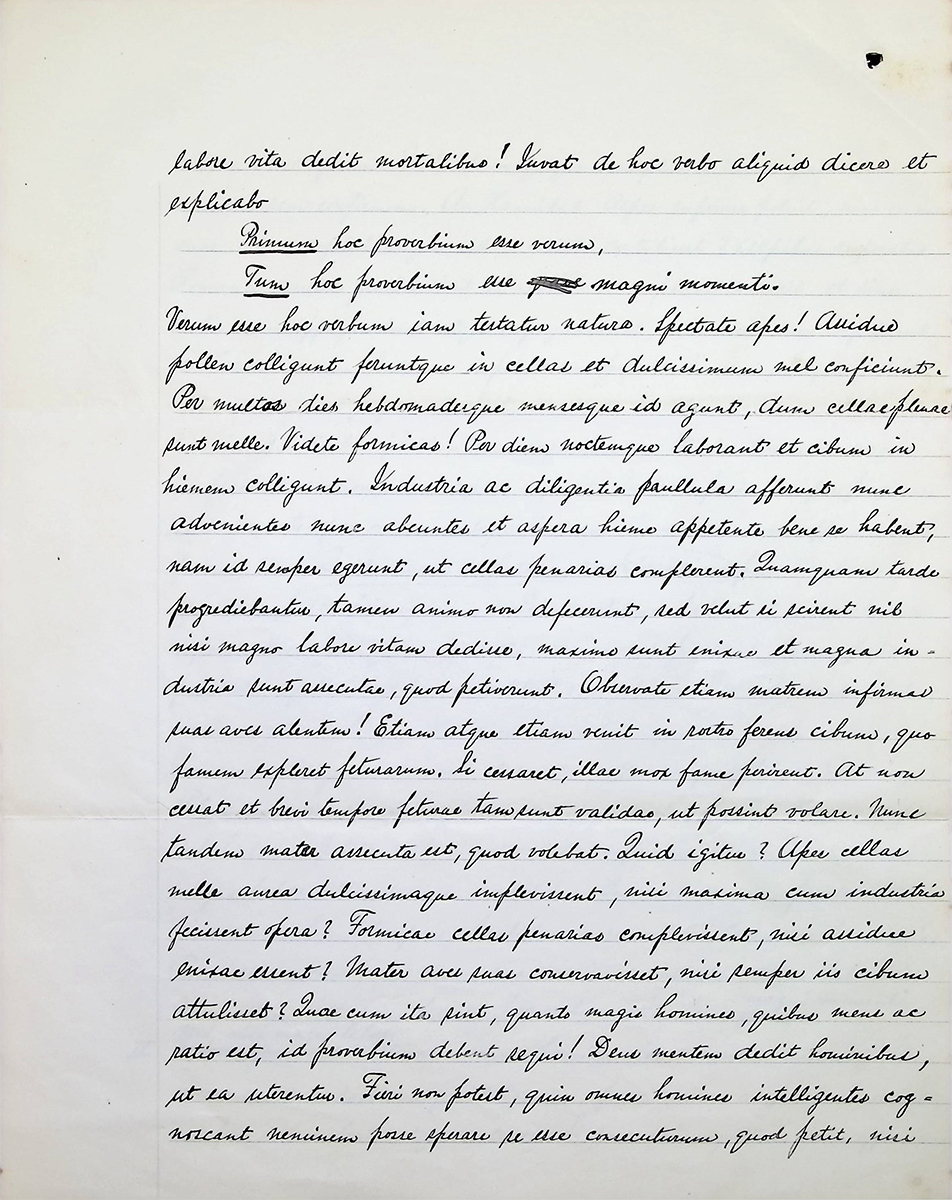 labore vita dedit mortalibus! Iuvat de hoc verbo aliquid dicere et
explicabo
Primum hoc proverbium esse verum,
Tum hoc proverbium esse magni momenti.
Verum esse hoc verbum iam testatur natura. Spectate apes! Assidue
pollen colligunt feruntque in cellas et dulcissimum mel conficiunt.
Per multos dies hebdomadesque mensesque id agunt, dum cellae plenae
sunt melle. Videte formicas! Per diem noctemque laborant et cibum in
hiemem colligunt. Industria ac diligentia paullula afferunt nunc
advenientes nunc abeuntes et aspera hieme appetente bene se habent,
nam id semper egerunt, ut cellas penarias complerent. Quamquam tarde
progrediebantur, tamen animo non defecerunt, sed velut si scirent nil
nisi magno labore vitam dedisse, maxime sunt enixae et magna in=
dustria sunt assecutae, quod petiverunt. Observate etiam matrem infirmas
suas aves alentem! Etiam atque etiam venit in rostro ferens cibum, quo
famem expleret feturarum. Si cessaret, illae mox fame perirent. At non
cessat et brevi tempore feturae tam sunt validae, ut possint volare. Nunc
tandem mater assecuta est, quod volebat. Quid igitur? Apes cellas
melle aurea dulcissimaque implevissent, nisi maxima cum industria
fecissent opera? Formicae cellas penarias complevissent, nisi assidue
enixae essent? Mater aves suas conservavisset, nisi semper iis cibum
attulisset? Quae cum ita sint, quanto magis homines, quibus mens ac
ratio est, id proverbium debent sequi! Deus mentem dedit hominibus,
ut ea uterentur. Fieri non potest, quin omnes homines intelligentes cog=
noscant neminem posse sperare se esse consecuturum, quod petit, nisi